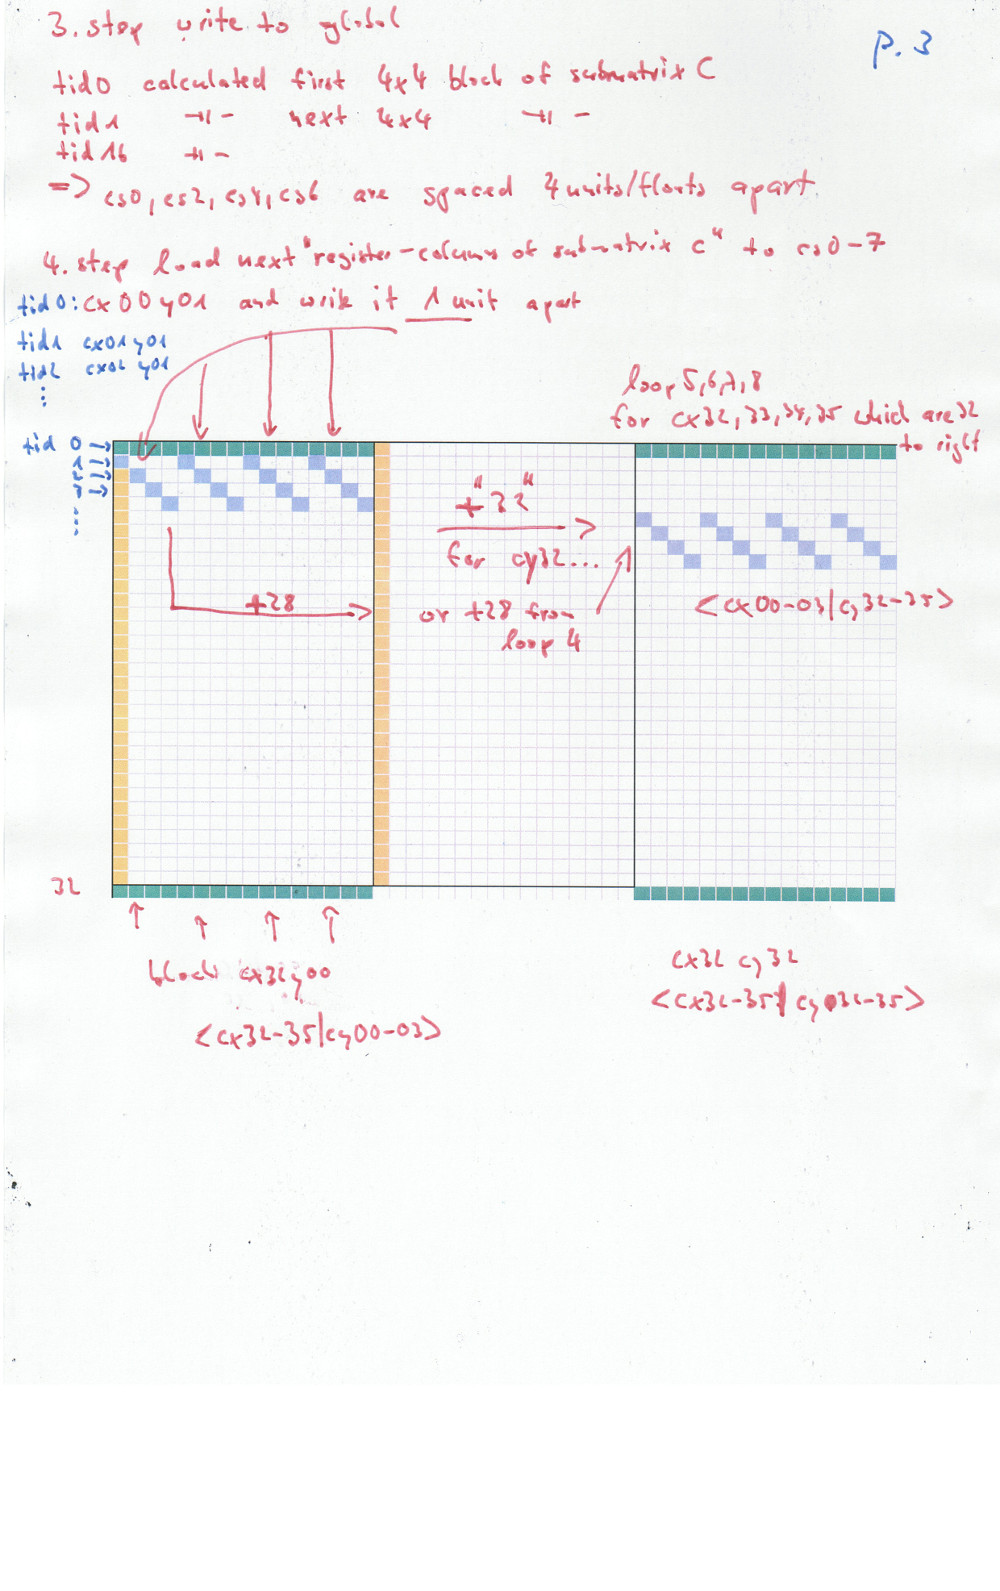 p. 3
3. step write to global
tid0 calculated first 4x4 block of submatrix C
tid1 -||- next 4x4 -||-
tid16 -||-
=> cs0, cs2, cs4, cs6 are spaced 4 units/floats apart.
4. step load next "register-column of submatrix c" to cs0-7
tid0: cx00y01 and write it 1 unit apart
tid1 cx01y01
tid2 cx02 y01
⋮
loop 5,6,7,8
for cx32, 33, 34, 35 which are 32
to right
tid 0 →
1 →
2 →
3 →
⋮
"+32"
for cy32...
+28
or +28 from
loop 4
<cx00-03|cy32-35>
32
block cx32y00
<cx32-35|cy00-03>
cx32 cy32
<cx32-35|cy032-35>